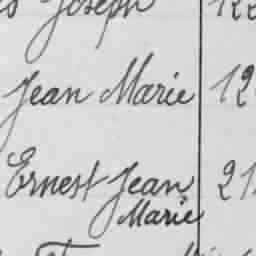 Joseph
Jean Marie 12
Ernest Jean 21
Marie